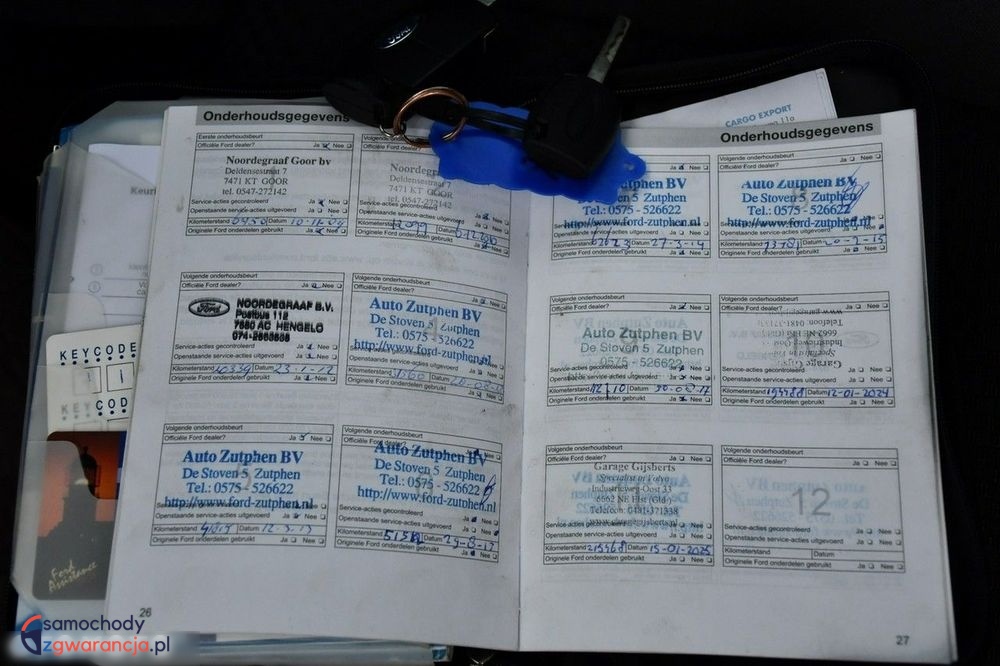 Ford
CARGO EXPORT
Onderhoudsgegevens
Eerste onderhoudsbeurt
Officiële Ford dealer? Ja Nee
Noordegraaf Goor bv
Deldensestraat 7
7471 KT GOOR
tel. 0547-272142
Service-acties gecontroleerd Ja Nee
Openstaande service-acties uitgevoerd Ja Nee
Kilometerstand Datum
Originele Ford onderdelen gebruikt Ja Nee
Volgende onderhoudsbeurt
Officiële Ford dealer? Ja Nee
Noordegraaf Goor bv
Deldensestraat 7
7471 KT GOOR
tel. 0547-272142
Ja Nee
Openstaande service-acties uitgevoerd Ja Nee
Kilometerstand Datum
Originele Ford onderdelen gebruikt Ja Nee
Volgende onderhoudsbeurt
Officiële Ford dealer? Ja Nee
Ford
NOORDEGRAAF B.V.
Postbus 112
7550 AC HENGELO
Service-acties gecontroleerd Ja Nee
Openstaande service-acties uitgevoerd Ja Nee
Kilometerstand Datum 23-1-12
Originele Ford onderdelen gebruikt Ja Nee
Volgende onderhoudsbeurt
Auto Zutphen BV
De Stoven 5 Zutphen
Tel.: 0575 - 526622
http://www.ford-zutphen.nl
Openstaande service-acties uitgevoerd Ja Nee
Kilometerstand Datum
Originele Ford onderdelen gebruikt Ja Nee
Volgende onderhoudsbeurt
Officiële Ford dealer? Ja Nee
Auto Zutphen BV
De Stoven 5 Zutphen
Tel.: 0575 - 526622
http://www.ford-zutphen.nl
Openstaande service-acties uitgevoerd Ja Nee
Kilometerstand Datum 12-3-13
Originele Ford onderdelen gebruikt Ja Nee
Volgende onderhoudsbeurt
Auto Zutphen BV
De Stoven 5 Zutphen
Tel.: 0575 - 526622
http://www.ford-zutphen.nl
Service-acties gecontroleerd Ja Nee
Openstaande service-acties uitgevoerd Ja Nee
Kilometerstand Datum 29-8-13
Originele Ford onderdelen gebruikt Ja Nee
26
Onderhoudsgegevens
Ja Nee
Auto Zutphen BV
De Stoven 5 Zutphen
Tel.: 0575 - 526622
http://www.ford-zutphen.nl
Openstaande service-acties uitgevoerd Ja Nee
Kilometerstand Datum 27-3-14
Originele Ford onderdelen gebruikt Ja Nee
Volgende onderhoudsbeurt
Officiële Ford dealer? Ja Nee
Auto Zutphen BV
De Stoven 5 Zutphen
Tel.: 0575 - 526622
http://www.ford-zutphen.nl
Openstaande service-acties uitgevoerd Ja Nee
Kilometerstand Datum
Originele Ford onderdelen gebruikt Ja Nee
Volgende onderhoudsbeurt
Officiële Ford dealer? Ja Nee
Auto Zutphen BV
De Stoven 5 Zutphen
0575 - 526622
Openstaande service-acties uitgevoerd Ja Nee
Kilometerstand Datum
Originele Ford onderdelen gebruikt Ja Nee
Volgende onderhoudsbeurt
Officiële Ford dealer? Ja Nee
Telefoon
6662 NE
Industrieweg-Oost 33
Garage
Service-acties gecontroleerd Ja Nee
Openstaande service-acties uitgevoerd Ja Nee
Kilometerstand 194488 Datum 12-01-2024
Originele Ford onderdelen gebruikt Ja Nee
Volgende onderhoudsbeurt
Officiële Ford dealer? Ja Nee
Garage Gijsberts
Specialist in Volvo
Industrieweg-Oost 33
6662 NE Elst (Gld.)
Telefoon: 0481-371338
Openstaande service-acties uitgevoerd Ja Nee
Kilometerstand 215468 Datum 15-01-2025
Originele Ford onderdelen gebruikt Ja Nee
Volgende onderhoudsbeurt
Officiële Ford dealer? Ja Nee
12
Service-acties gecontroleerd Ja Nee
Openstaande service-acties uitgevoerd Ja Nee
Kilometerstand Datum
Originele Ford onderdelen gebruikt Ja Nee
27
Keuri
KEYCODE
KEY CODE
Ford
Assistance
samochody
zgwarancja.pl